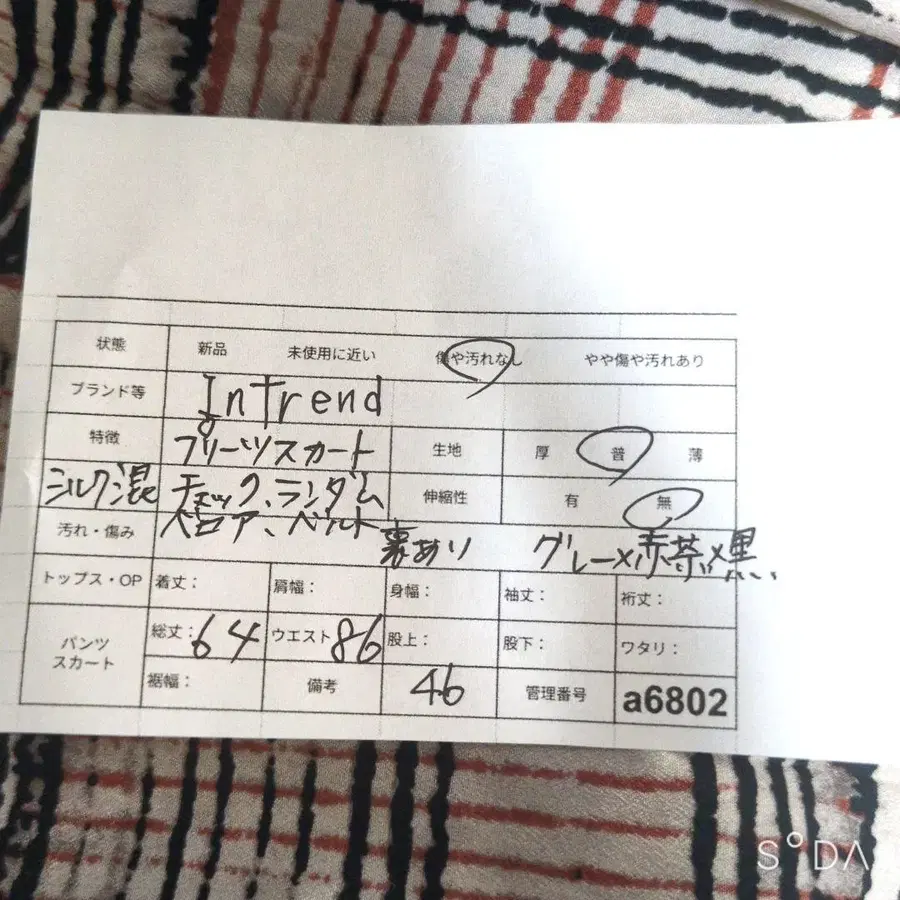 状態 新品 未使用に近い 傷や汚れなし やや傷や汚れあり
ブランド等 InTrend
特徴 プリーツスカート 生地 厚 普 薄
シルク混 チェック、ランダム 伸縮性 有 無
汚れ・傷み ベロア、ベルト 裏あり グレー×赤茶×黒
トップス・OP 着丈： 肩幅： 身幅： 袖丈： 裄丈：
パンツ スカート 総丈：64 ウエスト 86 股上： 股下： ワタリ：
裾幅： 備考 46 管理番号 a6802
SODA